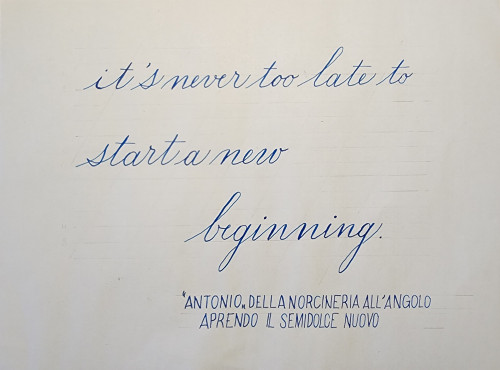 it's never too late to
start a new
beginning.
"ANTONIO„ DELLA NORCINERIA ALL'ANGOLO
APRENDO IL SEMIDOLCE NUOVO